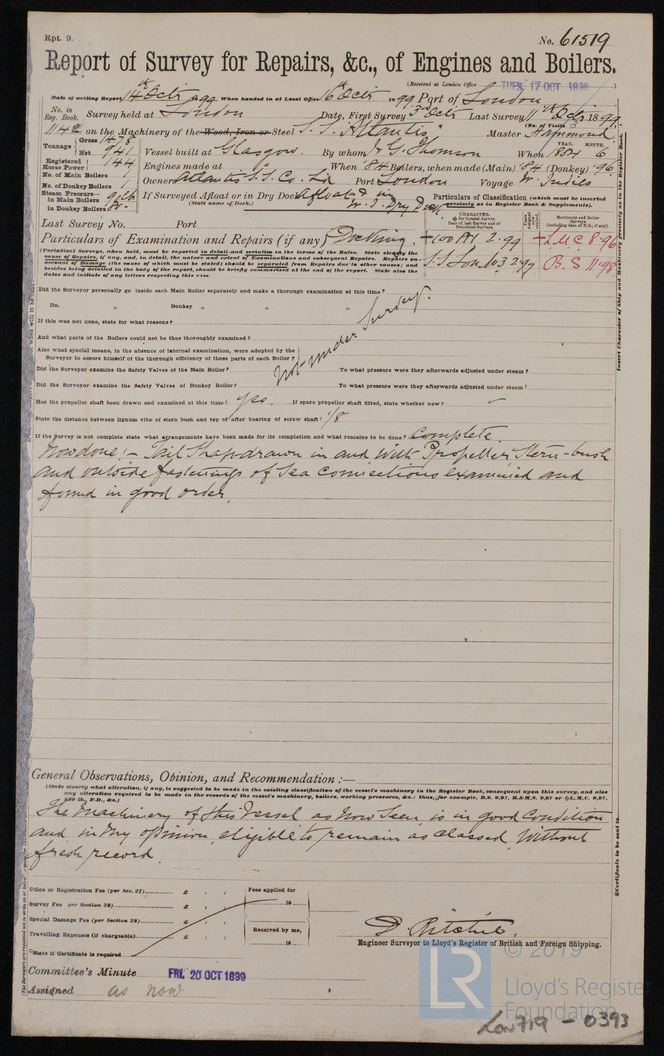 Rpt. 9.
No. 61519
Report of Survey for Repairs, &c., of Engines and Boilers.
(Received at London Office TUES. 17 OCT 1899
Date of writing Report 14th Octr 1899 When handed in at Local Office 16th Octr 1899 Port of London
No. in Reg. Book. Survey held at London Date, First Survey 3rd Octr Last Survey 11th Octr 1899
(No. of Visits
1142 on the Machinery of the Wood, Iron or Steel S.S. Atlantis Master Hammond
Tonnage Gross 1478 Net 941
Vessel built at Glasgow By whom J & G. Thomson When 1884 6
YEAR. MONTH.
Registered Horse Power 144
Engines made at " When 84 Boilers, when made (Main) 84 (Donkey) 96
No. of Main Boilers 1
Owners Atlantis S.S. Co. Ld Port London Voyage W. Indies
No. of Donkey Boilers 1
Steam Pressure in Main Boilers
in Donkey Boilers
If Surveyed Afloat or in Dry Dock Afloat & in
(State name of Dock.) W. I. Dry Dock
Particulars of Classification (which must be inserted precisely as in Register Book & Supplements).
Last Survey No. Port
CHARACTER.
Machinery and Boiler Surveys (including date of N.B., if any).
Particulars of Examination and Repairs (if any) Docking.
+100 A1 2.99
+LMC 8.96
S.S. Lon No3 2.97
B.S. 11.98
(Periodical Surveys, when held, must be reported in detail and seriatim in the terms of the Rules. State clearly the
cause of Repairs, if any, and, in detail, the nature and extent of Examinations and subsequent Repairs. Repairs on
account of Damage (the cause of which must be stated) should be separated from Repairs due to other causes; and
besides being detailed in the body of the report, should be briefly summarised at the end of the report. State also the
dates and initials of any letters respecting this case.
Did the Surveyor personally go inside each Main Boiler separately and make a thorough examination at this time?
Do. " Donkey " " " "
If this was not done, state for what reasons?
And what parts of the Boilers could not be thus thoroughly examined?
Also what special means, in the absence of internal examination, were adopted by the
Surveyor to assure himself of the thorough efficiency of those parts of each Boiler?
Not under Survey.
Did the Surveyor examine the Safety Valves of the Main Boiler? To what pressure were they afterwards adjusted under steam?
Did the Surveyor examine the Safety Valves of Donkey Boiler? To what pressure were they afterwards adjusted under steam?
Has the propeller shaft been drawn and examined at this time? Yes. If spare propeller shaft fitted, state whether new?
State the distance between lignum vitæ of stern bush and top of after bearing of screw shaft? 1/8
If the Survey is not complete state what arrangements have been made for its completion and what remains to be done? Complete.
Now done:- Tail Shaft drawn in and with Propeller Stern-bush
and outside fastenings of Sea Connections examined and
found in good order.
General Observations, Opinion, and Recommendation:—
(State clearly what alteration, if any, is suggested to be made in the existing classification of the vessel's machinery in the Register Book, consequent upon this survey, and also
any alteration required to be made in the records of the vessel's machinery, boilers, working pressures, &c.: thus, for example, B.S. 9,97, B.&M.S. 9,97 or L.M.C. 9,97,
The Machinery of this Vessel as Now Seen, is in good Condition
and in my opinion, eligible to remain as classed. Without
fresh record.
Office or Registration Fee (per Sec. 27) £ : : Fees applied for
Survey Fee (per Section 28) £ : : 18
Special Damage Fee (per Section 28) £ : : Received by me,
Travelling Expenses (if chargeable) £ : : 18
State if Certificate is required
D. Ritchie.
Engineer Surveyor to Lloyd's Register of British and Foreign Shipping.
Committee's Minute FRI. 20 OCT 1899
Assigned as now
© 2019
LR Lloyd's Register Foundation
Lon 719 - 0393